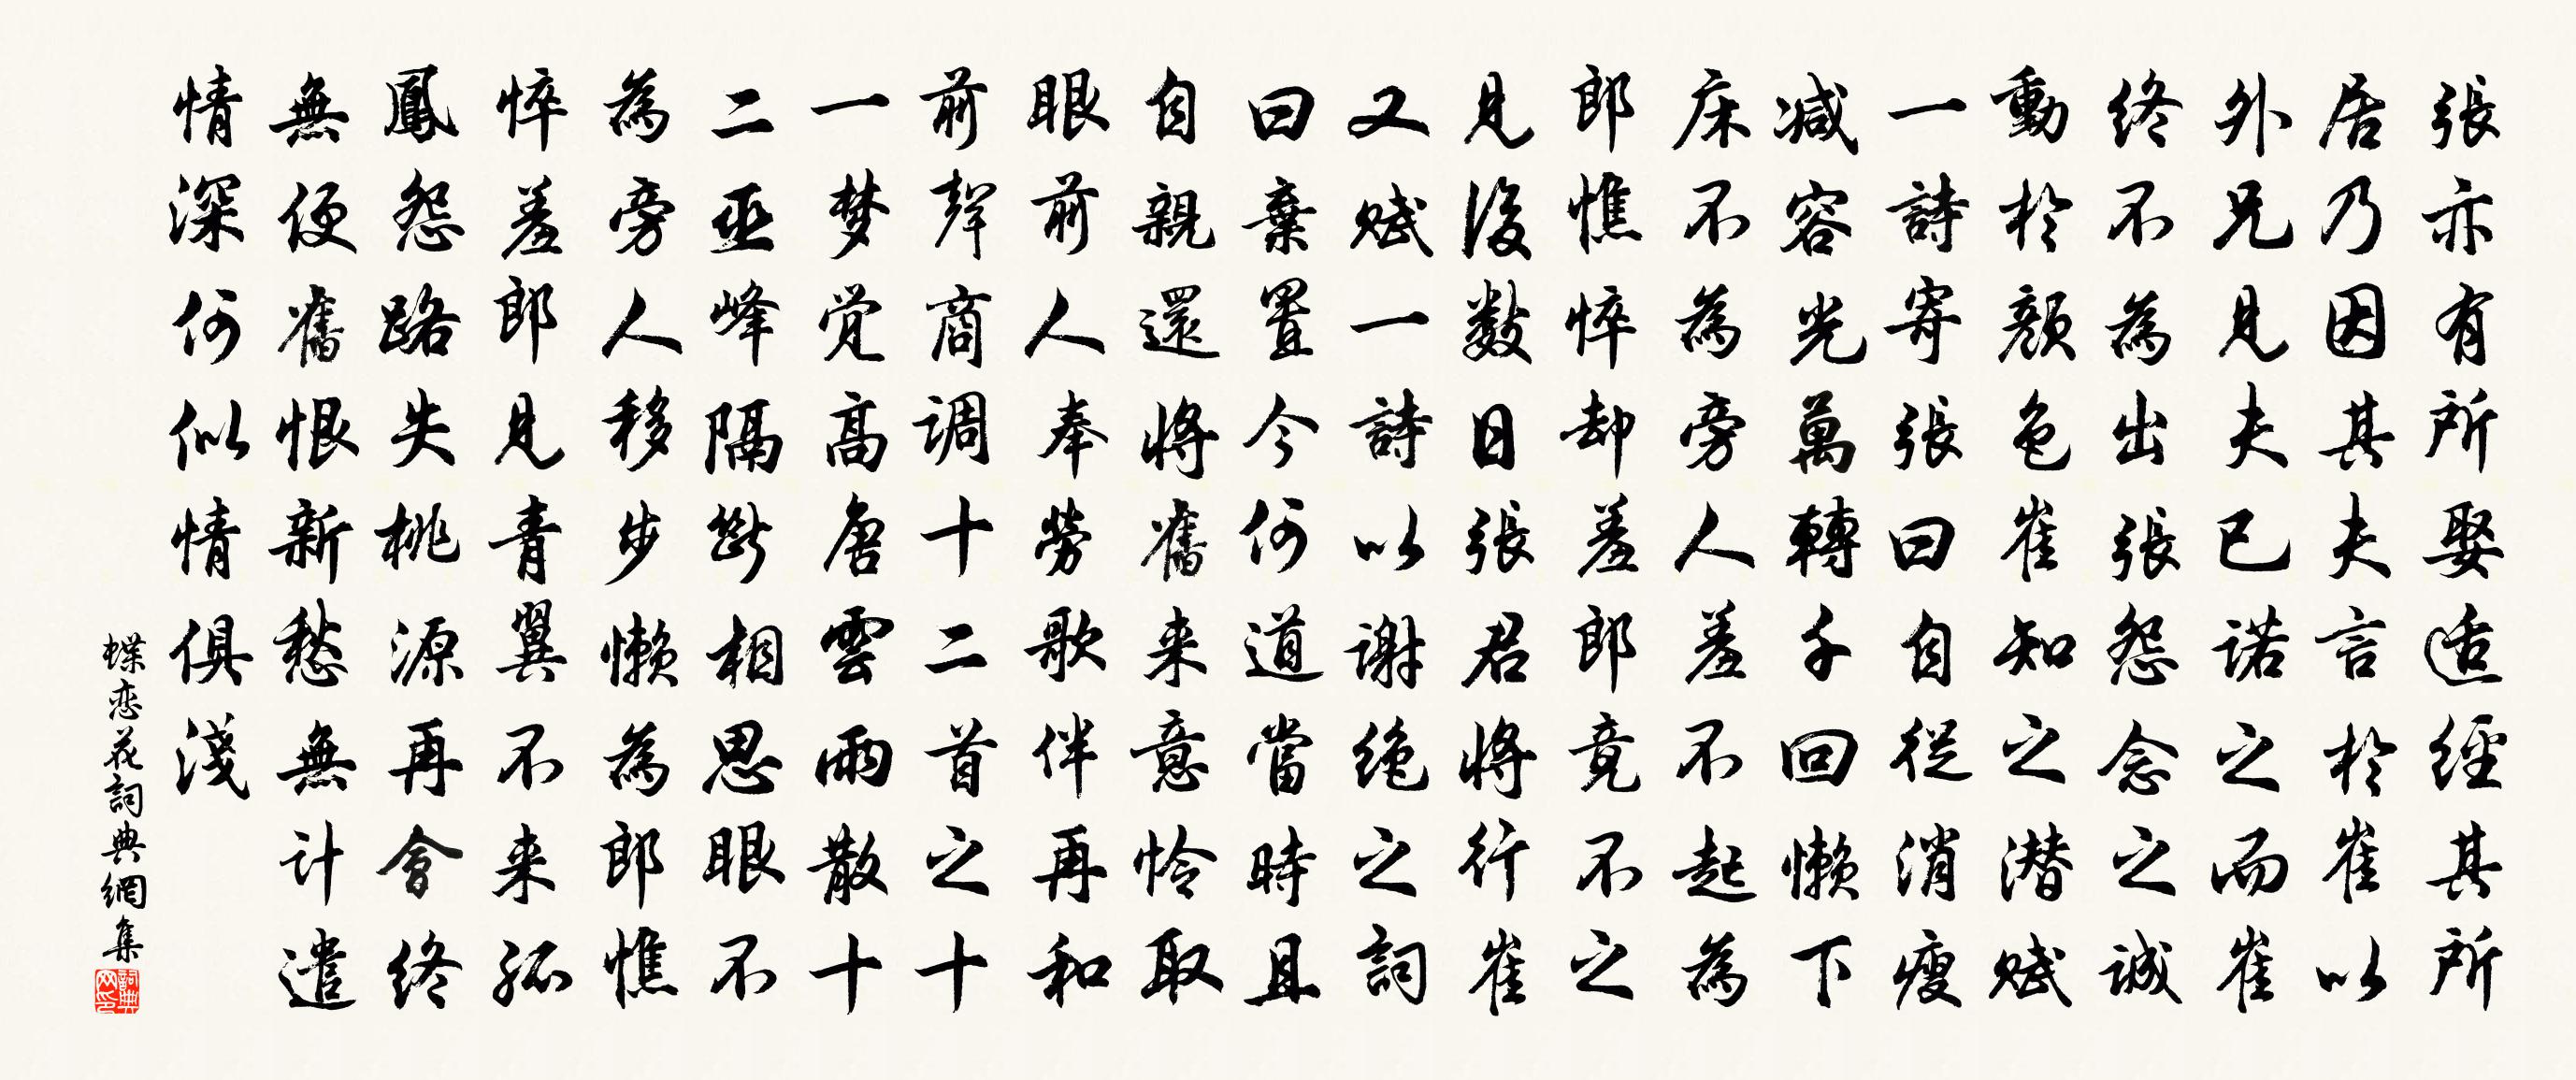 張亦有所娶适經其所
居乃因其夫言於崔以
外兄見夫已诺之而崔
终不為出張怨念之诚
動於颜色崔知之潜赋
一詩寄張曰自從消瘦
减容光萬轉千回懒下
床不為旁人羞不起為
郎憔悴却羞郎竟不之
見後数日張君将行崔
又赋一詩以谢绝之詞
曰棄置今何道當時且
自親還将舊来意怜取
眼前人奉劳歌伴再和
前聲商调十二首之十
一梦觉高唐雲雨散十
二巫峰隔断相思眼不
為旁人移步懒為郎憔
悴羞郎見青翼不来孤
鳳怨路失桃源再會终
無便舊恨新愁無计遣
情深何似情俱淺
蝶恋花詞典網集
詞典网印